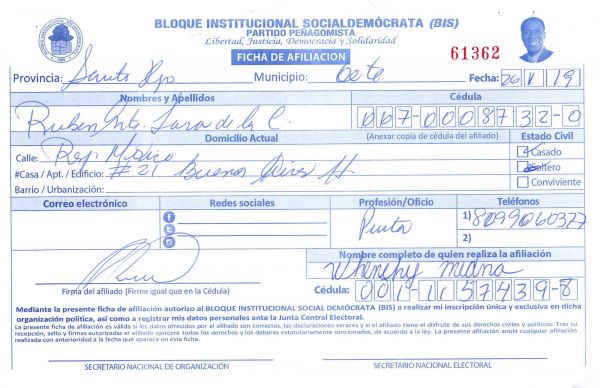 BLOQUE INSTITUCIONAL SOCIALDEMÓCRATA (BIS)
PARTIDO PEÑAGOMISTA
Libertad, Justicia, Democracia y Solidaridad
FICHA DE AFILIACION
61362
Provincia: Santo Dgo Municipio: Oeste Fecha: 26/1/19
Nombres y Apellidos Cédula
Ruben Lara de la C. 007-0008732-0
Domicilio Actual (Anexar copia de cédula del afiliado) Estado Civil
Calle: Rep. México Casado
#Casa / Apt. / Edificio: #21 Buenos Aires H. Soltero
Barrio / Urbanización: Conviviente
Correo electrónico Redes sociales Profesión/Oficio Teléfonos
1) 8099060327
2)
Nombre completo de quien realiza la afiliación
Cédula: 001-1157439-8
Firma del afiliado (Firme igual que en la Cédula)
Mediante la presente ficha de afiliación autorizo al BLOQUE INSTITUCIONAL SOCIAL DEMÓCRATA (BIS) a realizar mi inscripción única y exclusiva en dicha
organización política, así como a registrar mis datos personales ante la Junta Central Electoral.
La presente ficha de afiliación es válida si los datos ofrecidos por el afiliado son correctos, las declaraciones veraces y si el afiliado tiene el disfrute de sus derechos civiles y políticos. Tras su
recepción, sello y firmas autorizadas el afiliado ejercerá todos los derechos y los deberes estatutariamente sancionados, de acuerdo a la ley. La presente afiliación anula cualquier afiliación
realizada con anterioridad a la fecha que aparece en esta ficha.
SECRETARIO NACIONAL DE ORGANIZACIÓN SECRETARIO NACIONAL ELECTORAL